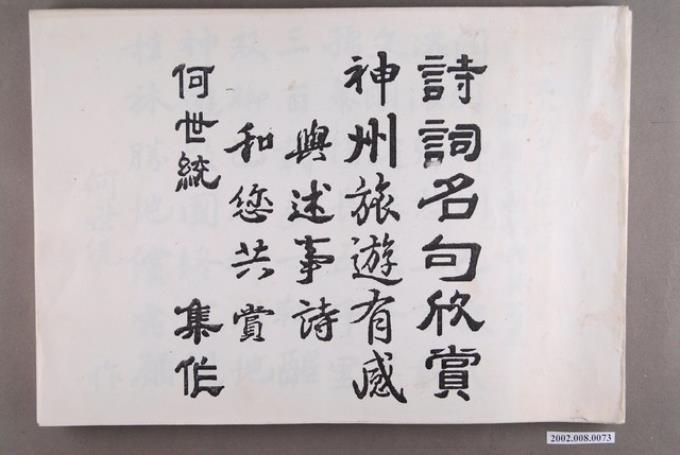 詩詞名句欣賞
神州旅遊有感
與述事詩
和您共賞
何世統 集作
2002.008.0073